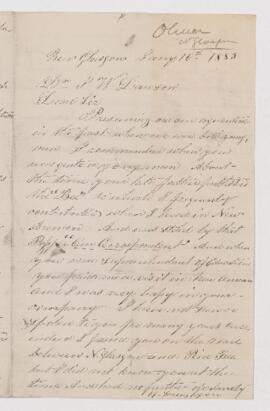 Oliver
N Glasgow
New Glasgow Jany 16th 1883
Dr J W Dawson
Dear Sir
Presuming on our acquaintance
in the past when we were both young
men I remember when you
were quite a young man About
the time your late father published
the Bee to which I frequently
contributed when I lived in New
Annan And was styled by that
Paper Our Correspondent And when
you were Superintendent of Education
you paid me a visit in New Annan
and I was very happy in your
company I have not since
spoken to you for many years once
indeed I passed you on the road
between N Glasgow and
but I did not know you at the
time And had no further opportunity